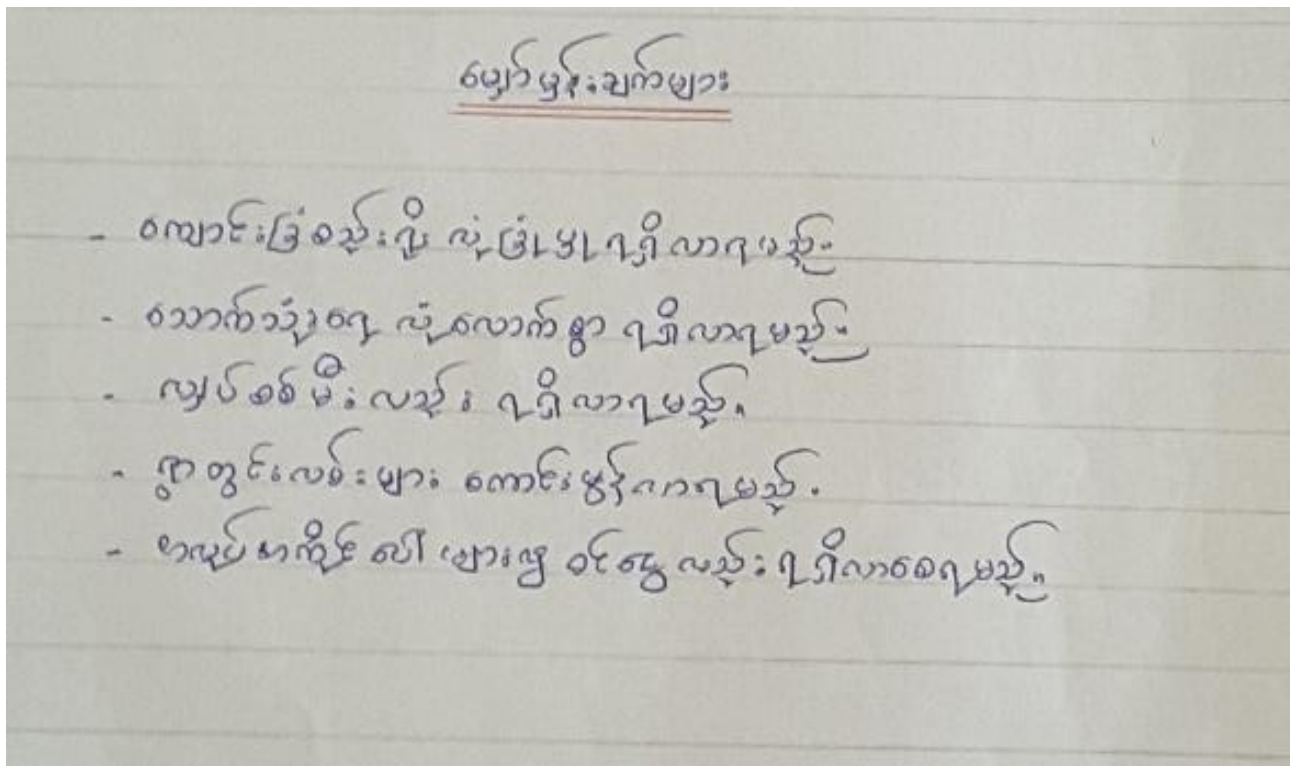 မျှော်မှန်းချက်များ
- ကျောင်းခြံစည်းရိုး လုံခြုံမှု ရရှိလာရမည်။
- သောက်သုံးရေ လုံလောက်စွာ ရရှိလာရမည်။
- လျှပ်စစ်မီးလည်း ရရှိလာရမည်။
- ရွာတွင်းလမ်းများ ကောင်းမွန်လာရမည်။
- အလုပ်အကိုင် ပေါများလျှ ဝင်ငွေ လည်းရရှိလာစေရမည်။